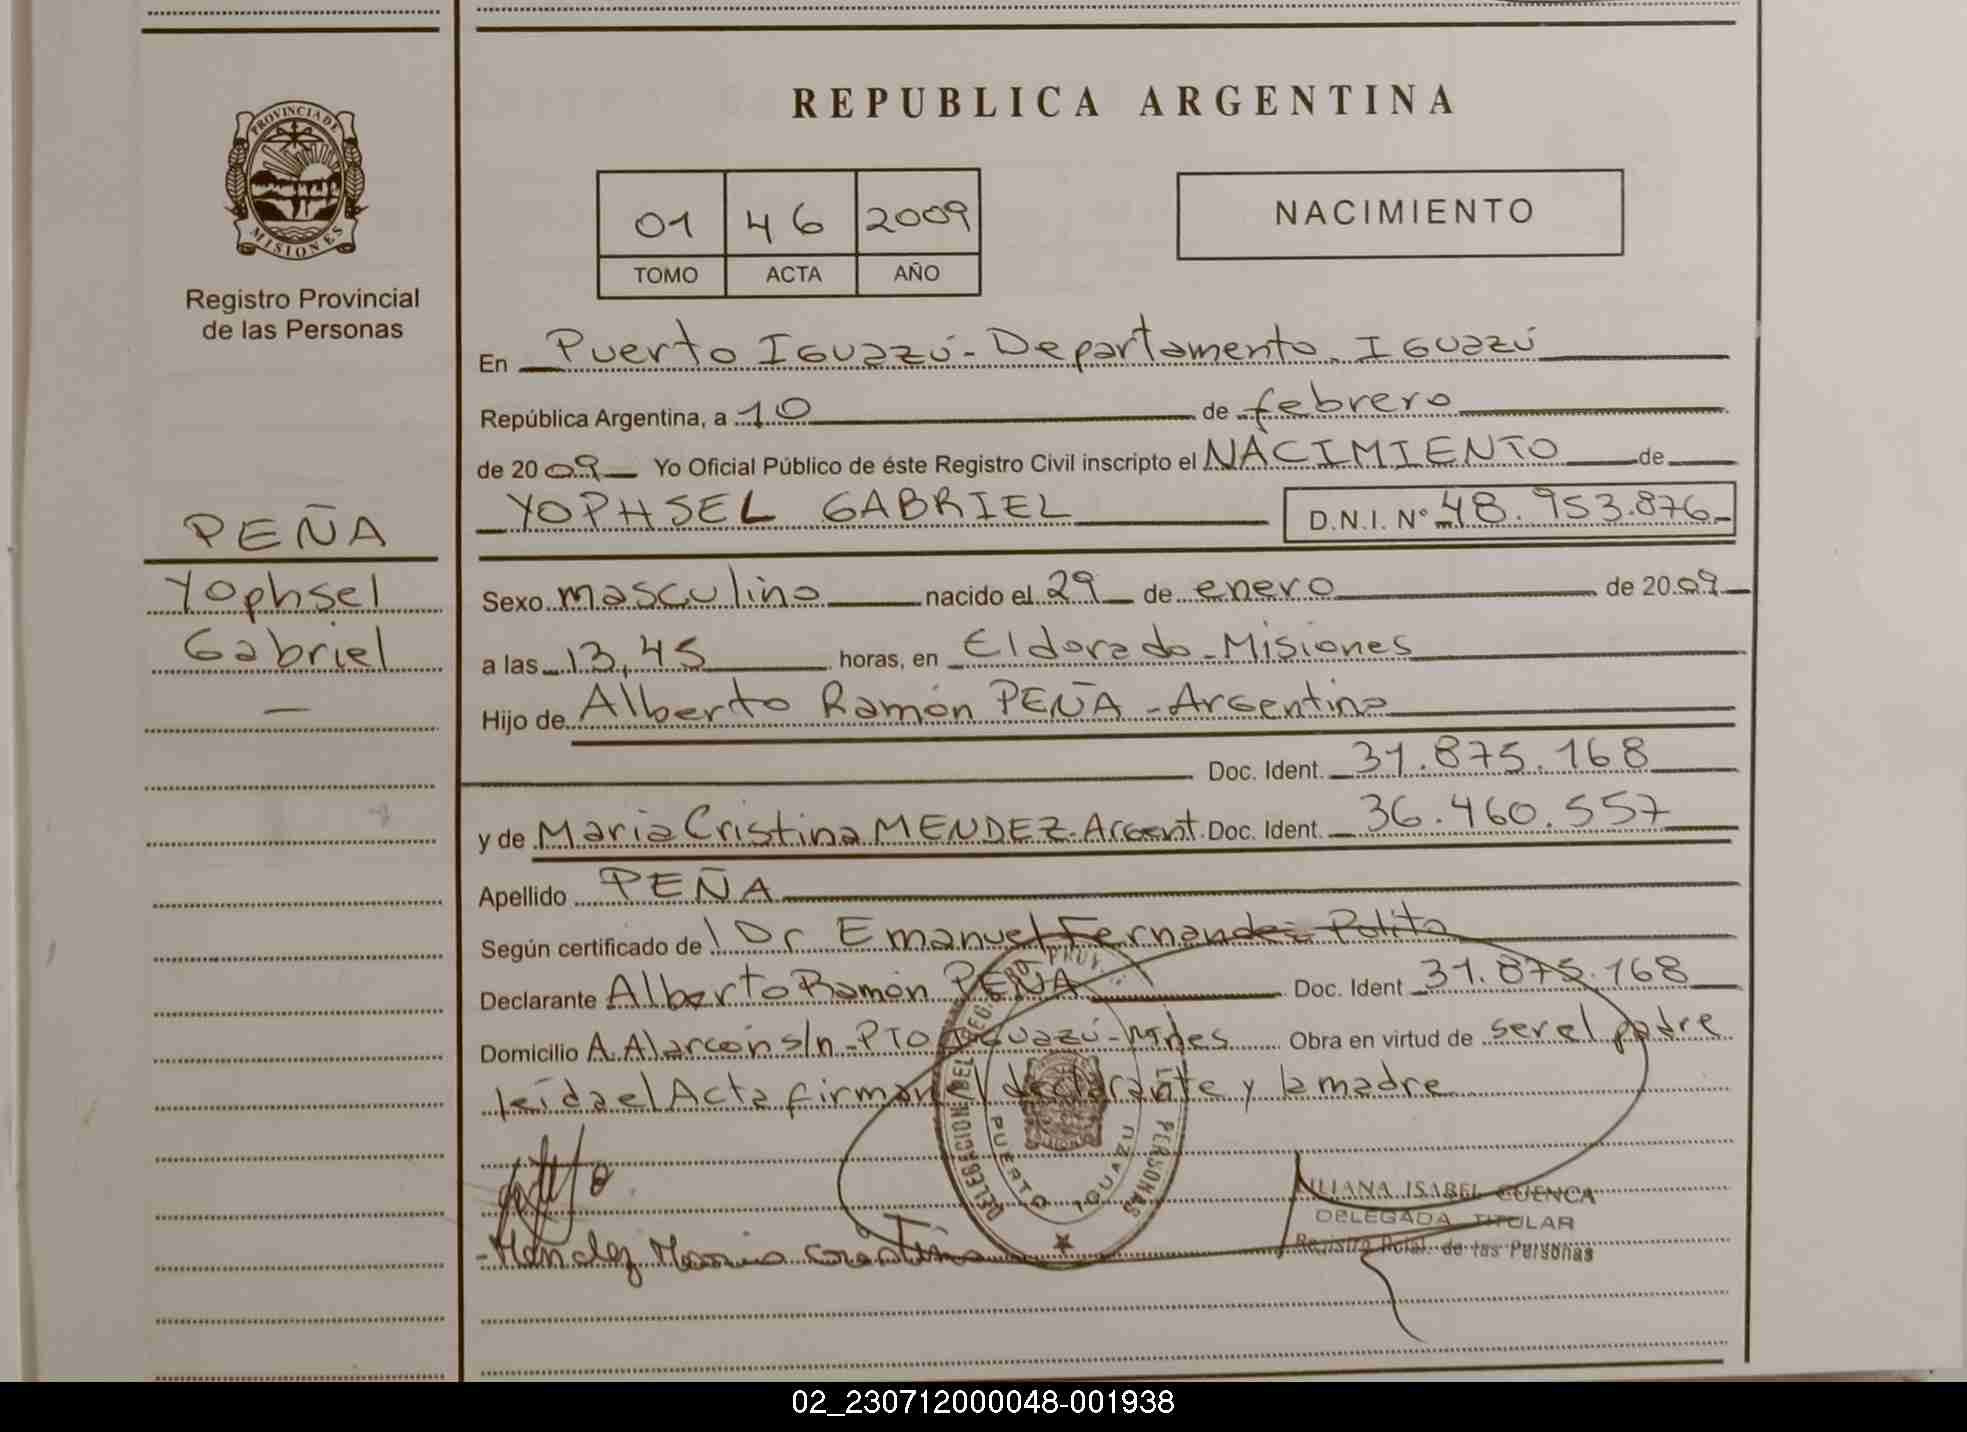 REPUBLICA ARGENTINA
PROVINCIA DE
MISIONES
Registro Provincial
de las Personas
01 46 2009
TOMO ACTA AÑO
NACIMIENTO
En Puerto Iguazú - Departamento Iguazú
República Argentina, a 10 de febrero
de 2009 Yo Oficial Público de éste Registro Civil inscripto el NACIMIENTO de
YOPHSEL GABRIEL D.N.I. Nº 48.953.876
PEÑA
Yophsel
Gabriel
Sexo masculino nacido el 29 de enero de 2009
a las 13,45 horas, en Eldorado - Misiones
Hijo de Alberto Ramón PEÑA - Argentino
Doc. Ident. 31.875.168
y de Maria Cristina MENDEZ - Argent. Doc. Ident. 36.460.557
Apellido PEÑA
Según certificado de Dr Emanuel Fernandez Polito
Declarante Alberto Ramón PEÑA Doc. Ident 31.875.168
Domicilio A. Alarcón s/n - Pto Iguazú - Mnes Obra en virtud de ser el padre
leída el Acta firman el declarante y la madre
DELEGACION DEL REGISTRO PROV. PERSONAS
PUERTO IGUAZU
Mendez Maria Cristina
LILIANA ISABEL CUENCA
DELEGADA TITULAR
Registro Pcial. de las Personas
02_230712000048-001938